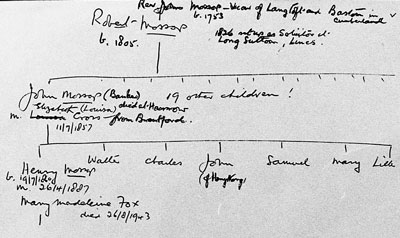 Rev John Mossop - Vicar of Langtoft and Baston in Cumberland
b. 1753
Robert Mossop
b. 1805.
1826 set up as Solicitor at
Long Sutton, Lincs.
John Mossop (Banker) 19 other children!
Elizabeth (Louisa) died at Harrow
m. Cross - from Brentford.
11/7/1857
Henry Mossop Walter Charles John Samuel Mary Lilla
(of Hong Kong)
b. 19/7/1860
m. 26/4/1887
Mary Madeleine Fox
died 26/8/1943